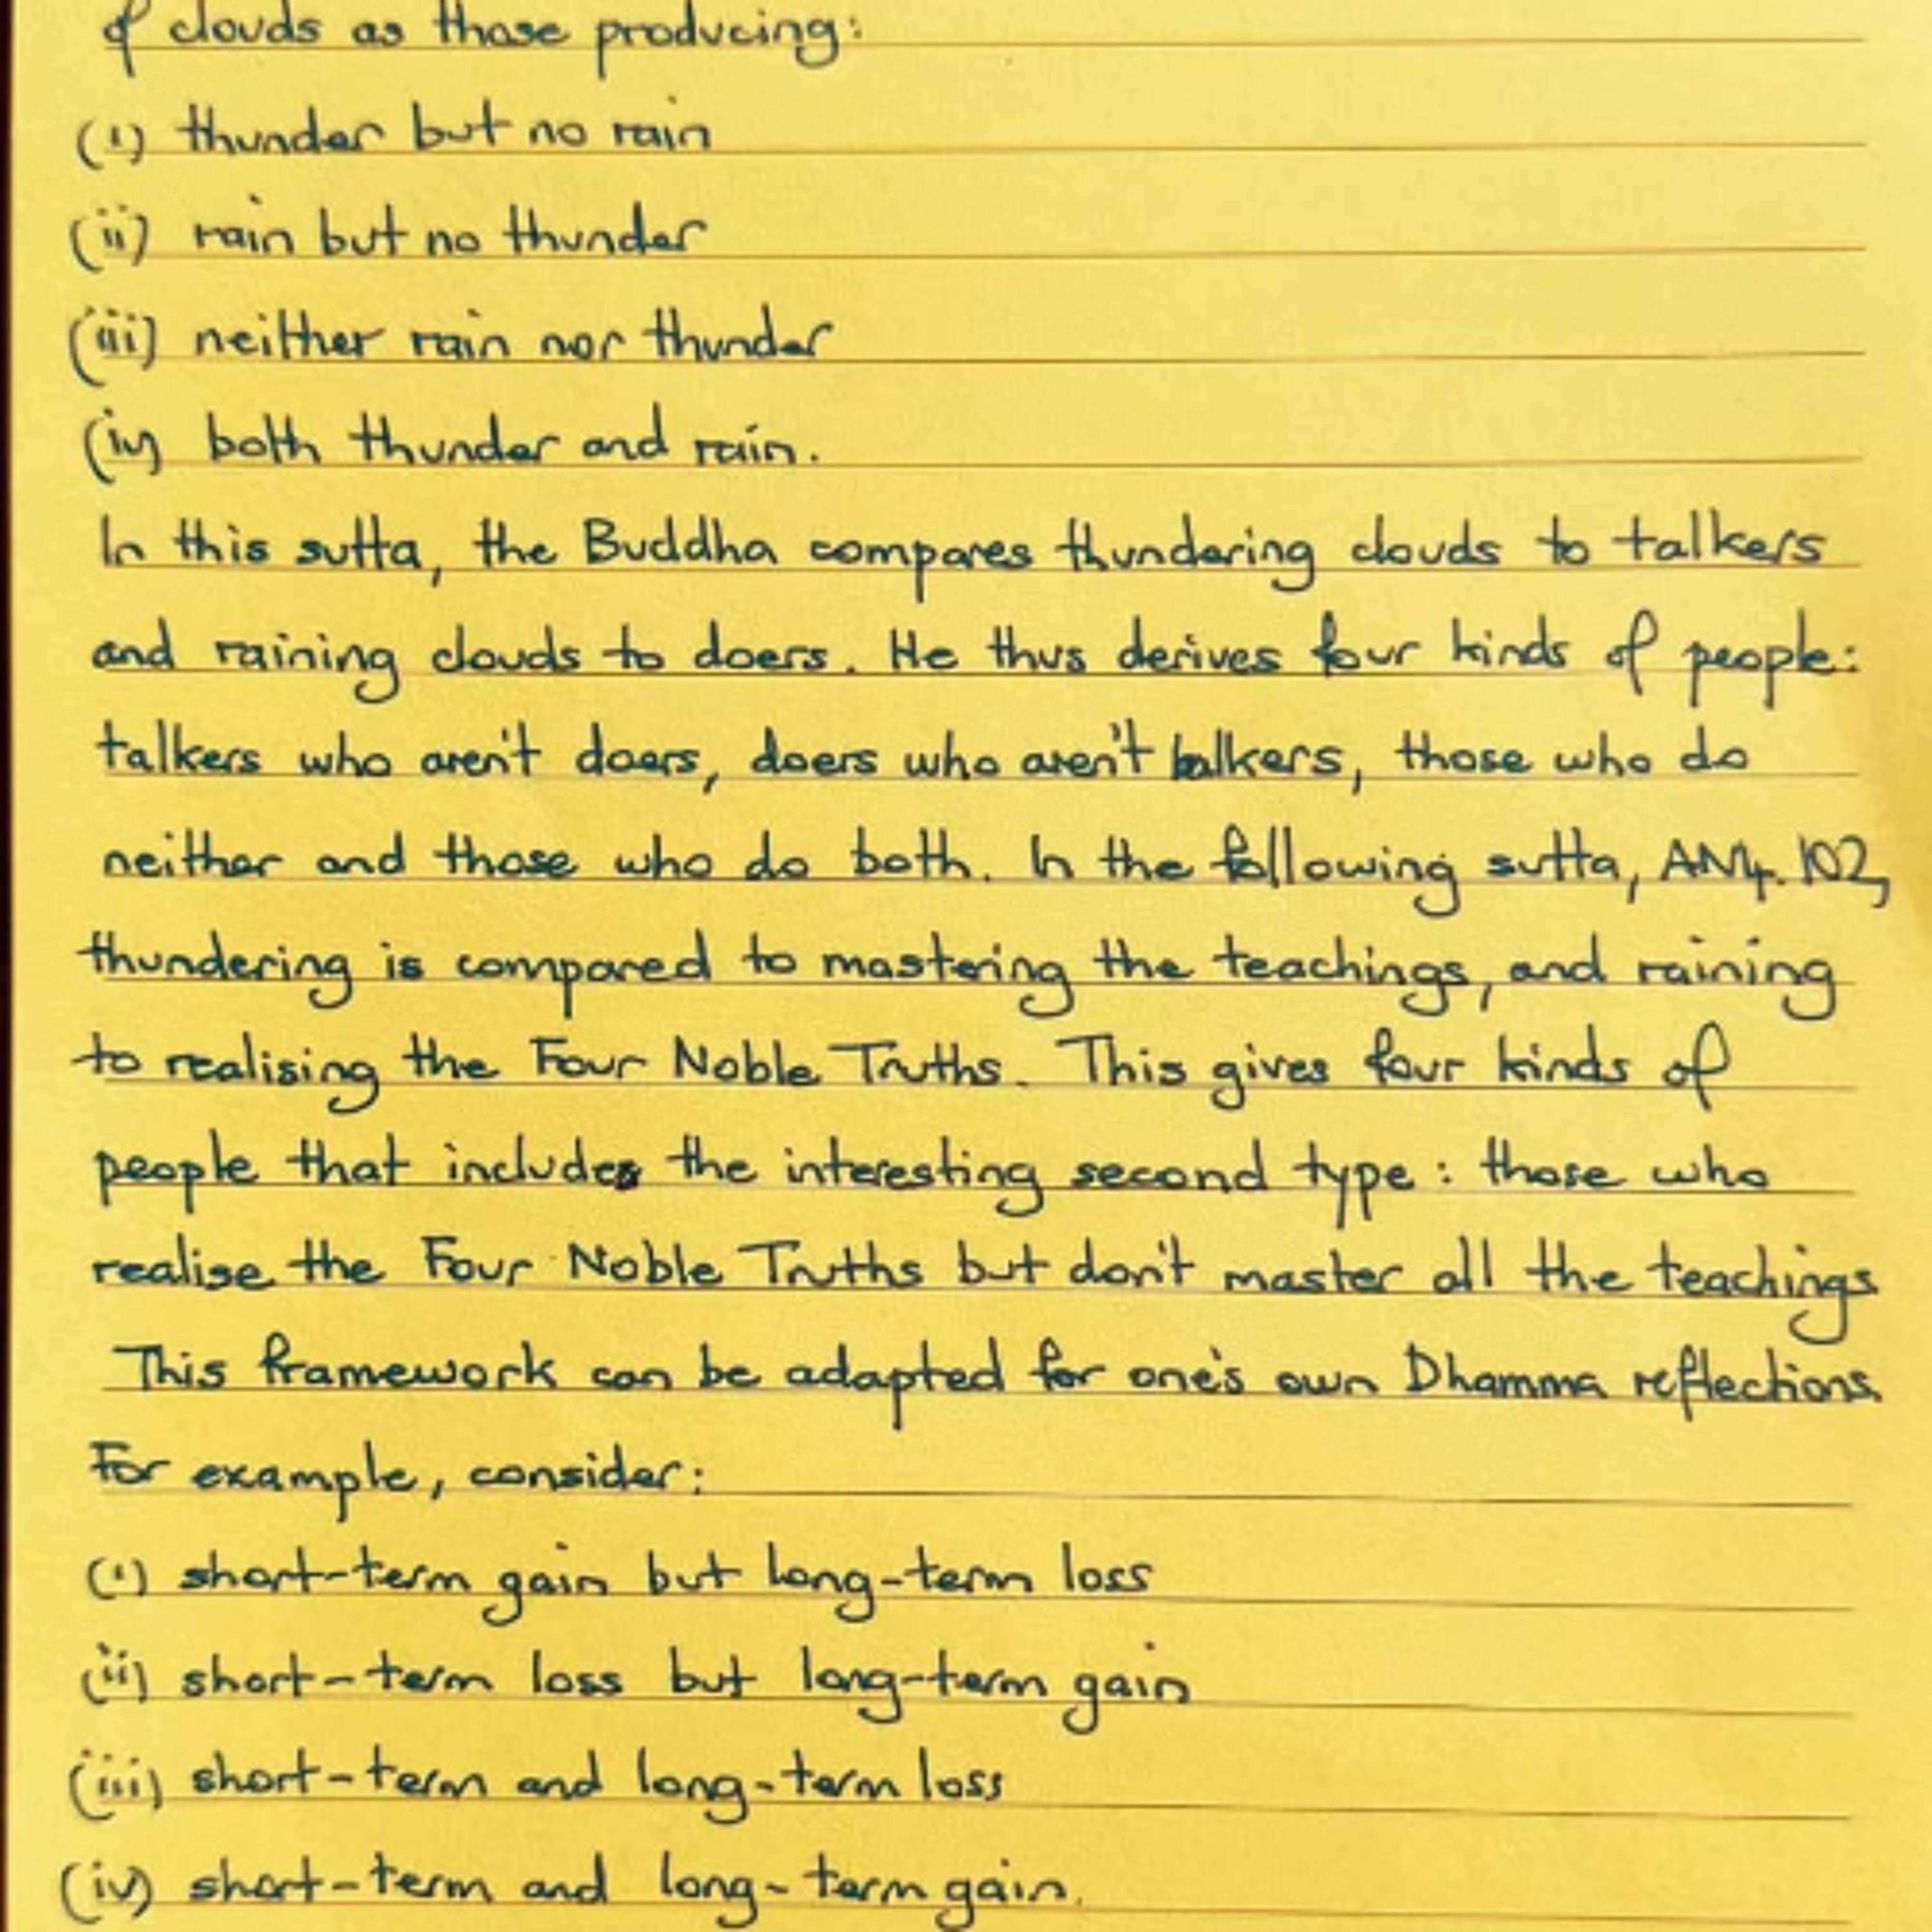 of clouds as those producing:
(i) thunder but no rain
(ii) rain but no thunder
(iii) neither rain nor thunder
(iv) both thunder and rain.
In this sutta, the Buddha compares thundering clouds to talkers
and raining clouds to doers. He thus derives four kinds of people:
talkers who aren't doers, doers who aren't talkers, those who do
neither and those who do both. In the following sutta, AN4.102,
thundering is compared to mastering the teachings, and raining
to realising the Four Noble Truths. This gives four kinds of
people that includes the interesting second type: those who
realise the Four Noble Truths but don't master all the teachings.
This framework can be adapted for one's own Dhamma reflections.
For example, consider:
(i) short-term gain but long-term loss
(ii) short-term loss but long-term gain
(iii) short-term and long-term loss
(iv) short-term and long-term gain.